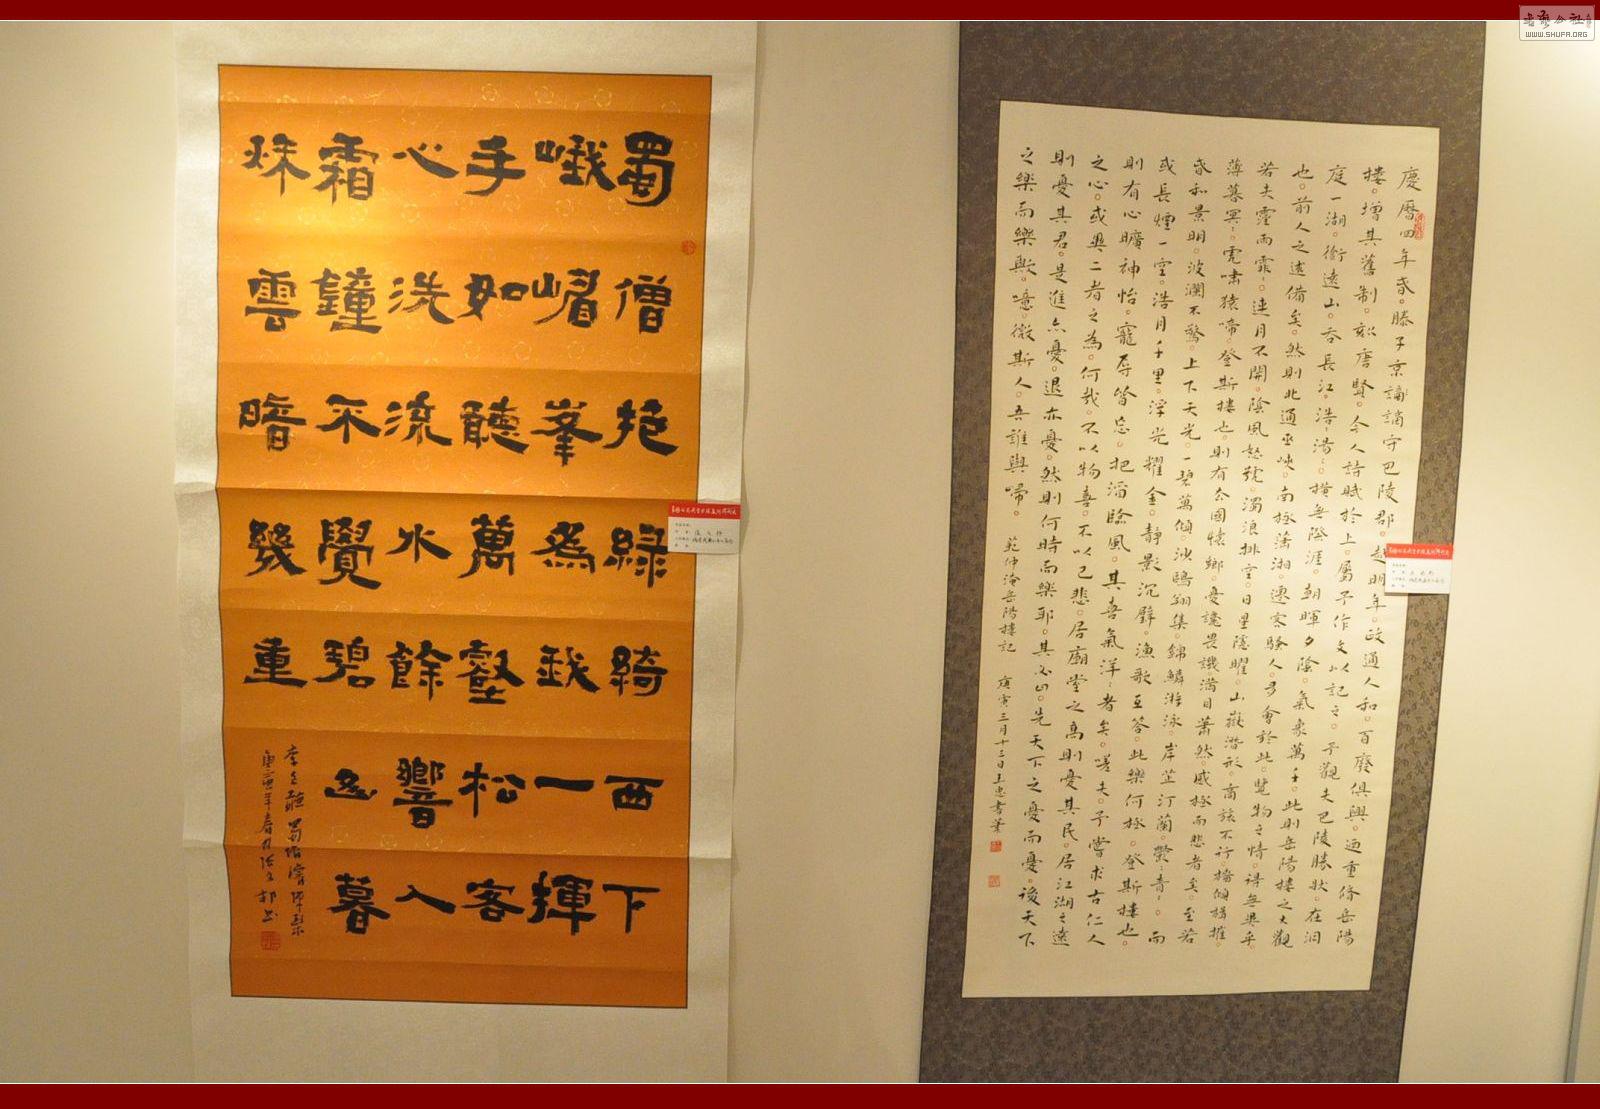 蜀僧抱綠綺西下
峨嵋峯爲我一揮
手如聽萬壑松客
心洗流水餘響入
霜鐘不覺碧山暮
秋雲暗幾重
李白聽蜀僧濬彈琴
庚寅年春月張文書
慶曆四年春。滕子京謫謫守巴陵郡。越明年。政通人和。百廢俱興。迺重修岳陽
樓。增其舊制。刻唐賢。今人詩賦於上。屬予作文以記之。予觀夫巴陵勝狀。在洞
庭一湖。銜遠山。吞長江。浩湯湯。橫無際涯。朝暉夕陰。氣象萬千。此則岳陽樓之大觀
也。前人之述備矣。然則北通巫峽。南極瀟湘。遷客騷人。多會於此。覽物之情。得無異乎
若夫霪雨霏霏。連月不開。陰風怒號。濁浪排空。日星隱曜。山嶽潛形。商旅不行。檣傾楫摧
薄暮冥冥。虎嘯猿啼。登斯樓也。則有去國懷鄉。憂讒畏譏。滿目蕭然。感極而悲者矣。至若
春和景明。波瀾不驚。上下天光。一碧萬傾。沙鷗翔集。錦鱗游泳。岸芷汀蘭。鬱青青。而
或長煙一空。浩月千里。浮光耀金。靜影沉璧。漁歌互答。此樂何極。登斯樓也。
則有心曠神怡。寵辱皆忘。把酒臨風。其喜氣洋洋者矣。嗟夫。予嘗求古仁人
之心。或異二者之為。何哉。不以物喜。不以己悲。居廟堂之高則憂其民。居江湖之遠
則憂其君。是進亦憂。退亦憂。然則何時而樂耶。其必曰。先天下之憂而憂。後天下
之樂而樂歟。噫。微斯人。吾誰與歸。范仲淹岳陽樓記 庚寅三月十三日王忠書業
WWW.SHUFA.ORG